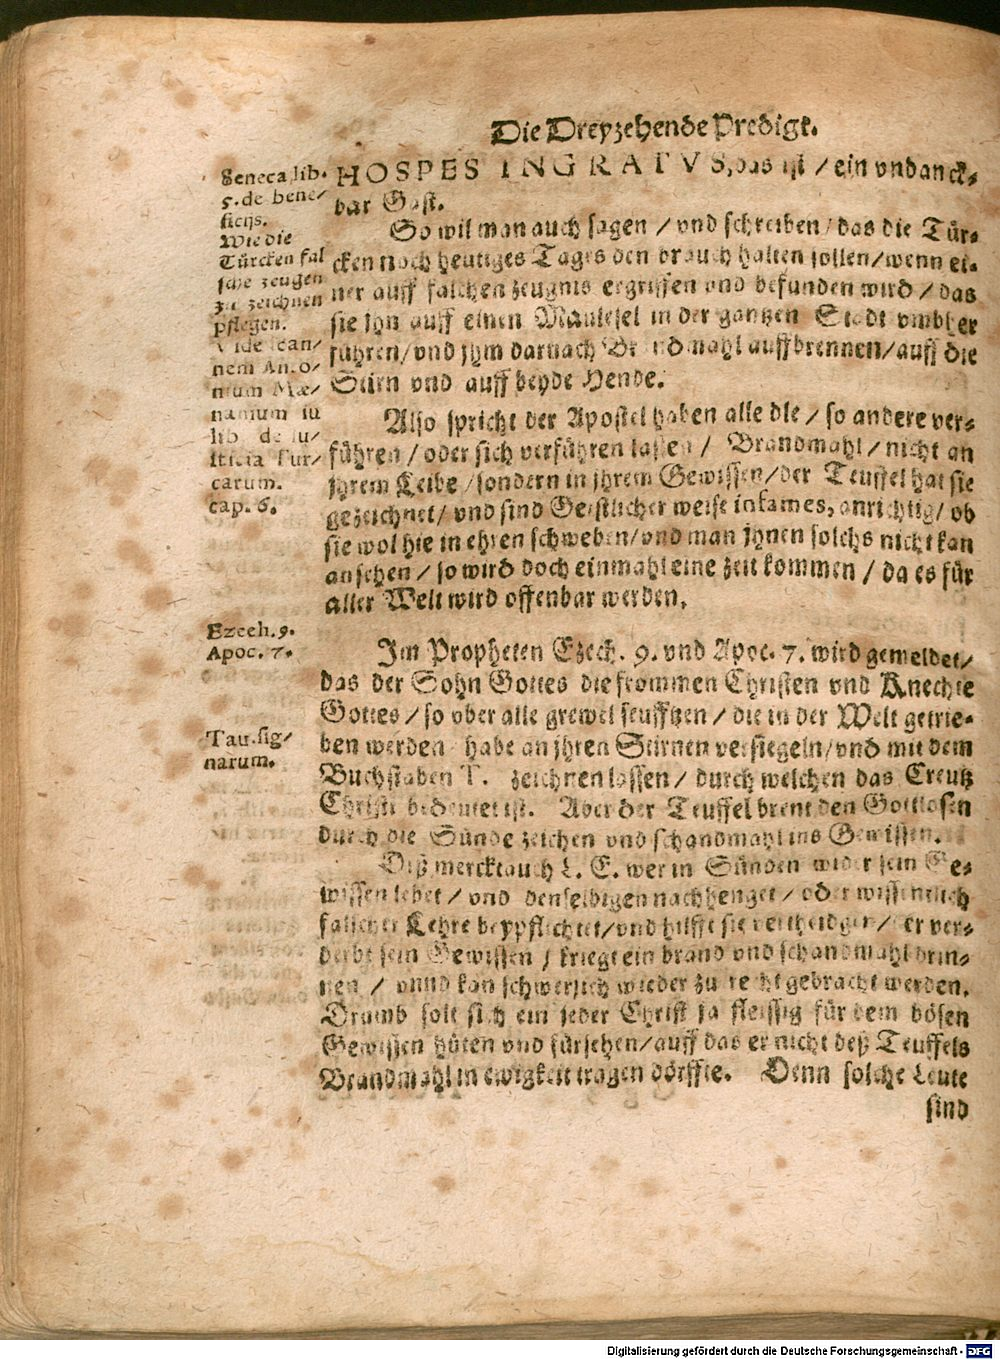 Die Dreyzehende Predigt.
Seneca lib.
5. de bene/
ficijs.
Wie die
Türcken fal
sche zeugen
zu zeichnen
pflegen.
Vide Ioan/
nem Anto/
nium Mæ/
namium in
lib. de iu/
stitia Tur/
carum.
cap. 6.
HOSPES INGRATVS, das ist / ein vndanck-
bar Gast.
So wil man auch sagen / vnd schreiben / das die Tür-
cken noch heutiges Tages den brauch halten sollen / wenn ei-
ner auff falschen zeugnis ergriffen vnd befunden wird / das
sie jhn auff einen Maulesel in der gantzen Stadt vmbher
führen / vnd jhm darnach Brandmahl auffbrennen / auff die
Stirn vnd auff beyde Hende.
Also spricht der Apostel haben alle die / so andere ver-
führen / oder sich verführen lassen / Brandmahl / nicht an
jhrem Leibe / sondern in jhrem Gewissen / der Teuffel hat sie
gezeichnet / vnd sind Geistlicher weise infames, anrichtig / ob
sie wol hie in ehren schweben / vnd man jhnen solchs nicht kan
ansehen / so wird doch einmahl eine zeit kommen / da es für
aller Welt wird offenbar werden.
Ezech. 9.
Apoc. 7.
Im Propheten Ezech. 9. vnd Apoc. 7. wird gemeldet /
das der Sohn Gottes die frommen Christen vnd Knechte
Gottes / so vber alle grewel seufftzen / die in der Welt getrie-
ben werden / habe an jhren Stirnen versiegeln / vnd mit dem
Buchstaben T. zeichnen lassen / durch welchen das Creutz
Christi bedeutet ist. Aber der Teuffel brent den Gottlosen
durch die Sünde zeichen vnd schandmahl ins Gewissen.
Tau. sig/
narum.
Diß merckt auch L. E. wer in Sünden wider sein Ge-
wissen lebet / vnd denselbigen nachhenget / oder wissentlich
falscher Lehre beypflichtet / vnd hilfft sie vertheidgen / er ver-
derbt sein Gewissen / kriegt ein brand vnd schandmahl drin-
nen / vnnd kan schwerlich wieder zu recht gebracht werden.
Drumb solt sich ein jeder Christ ja fleissig für dem bösen
Gewissen hüten vnd fürsehen / auff das er nicht deß Teuffels
Brandmahl in ewigkeit tragen dörffte. Denn solche Leute
sind
Digitalisierung gefördert durch die Deutsche Forschungsgemeinschaft - DFG